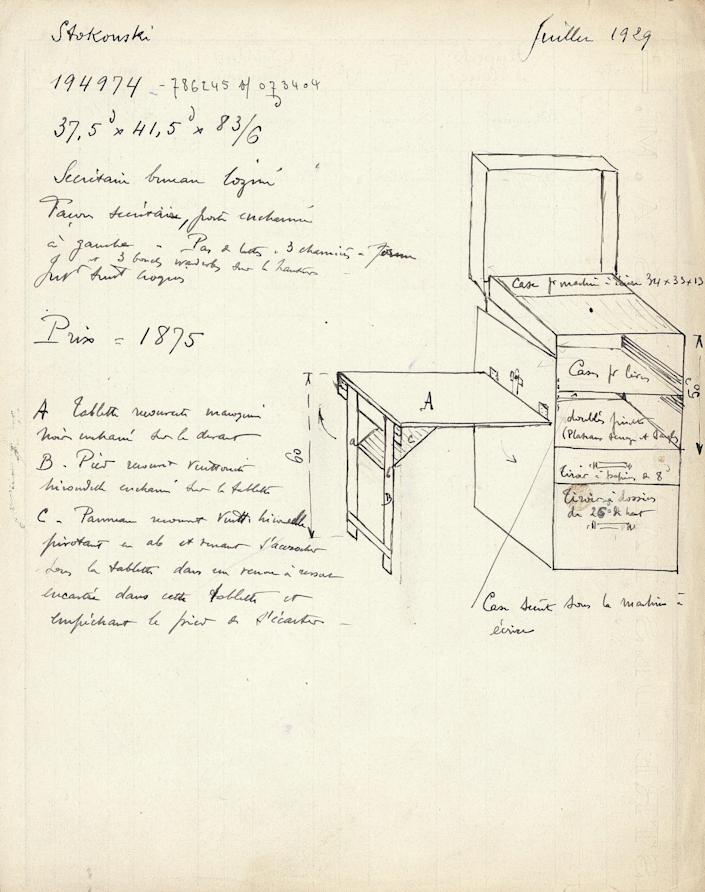 Stokowski
Juillet 1929
194974 - 786245 à 073404
37,5 x 41,5 x 83/6
Secrétaire bureau loziné
Façon secrétaire, porte encharnée
à gauche - Pas de lettes. 3 charnières - 
et 3 bandes sur la hauteur
suivt croquis
Prix = 1875
A Tablette recouverte
noir encharné sur le devant
B. Pied recouvt vuittonite
hirondelle encharné sur la tablette
C - Panneau recouvt vuittte hirondelle
pivotant en ab et venant s'accrocher
sous la tablette dans un à ressort
encastré dans cette tablette et
empêchant le pied de s'écarter -
Case pr machine à écrire 34 x 33 x 13
Case pr livres
doubles
(Plateaux
Tiroir à papiers de 8
Tiroir à dossiers
de 26 de haut
A
a
C
B
60
50
Case sous la machine à
écrire